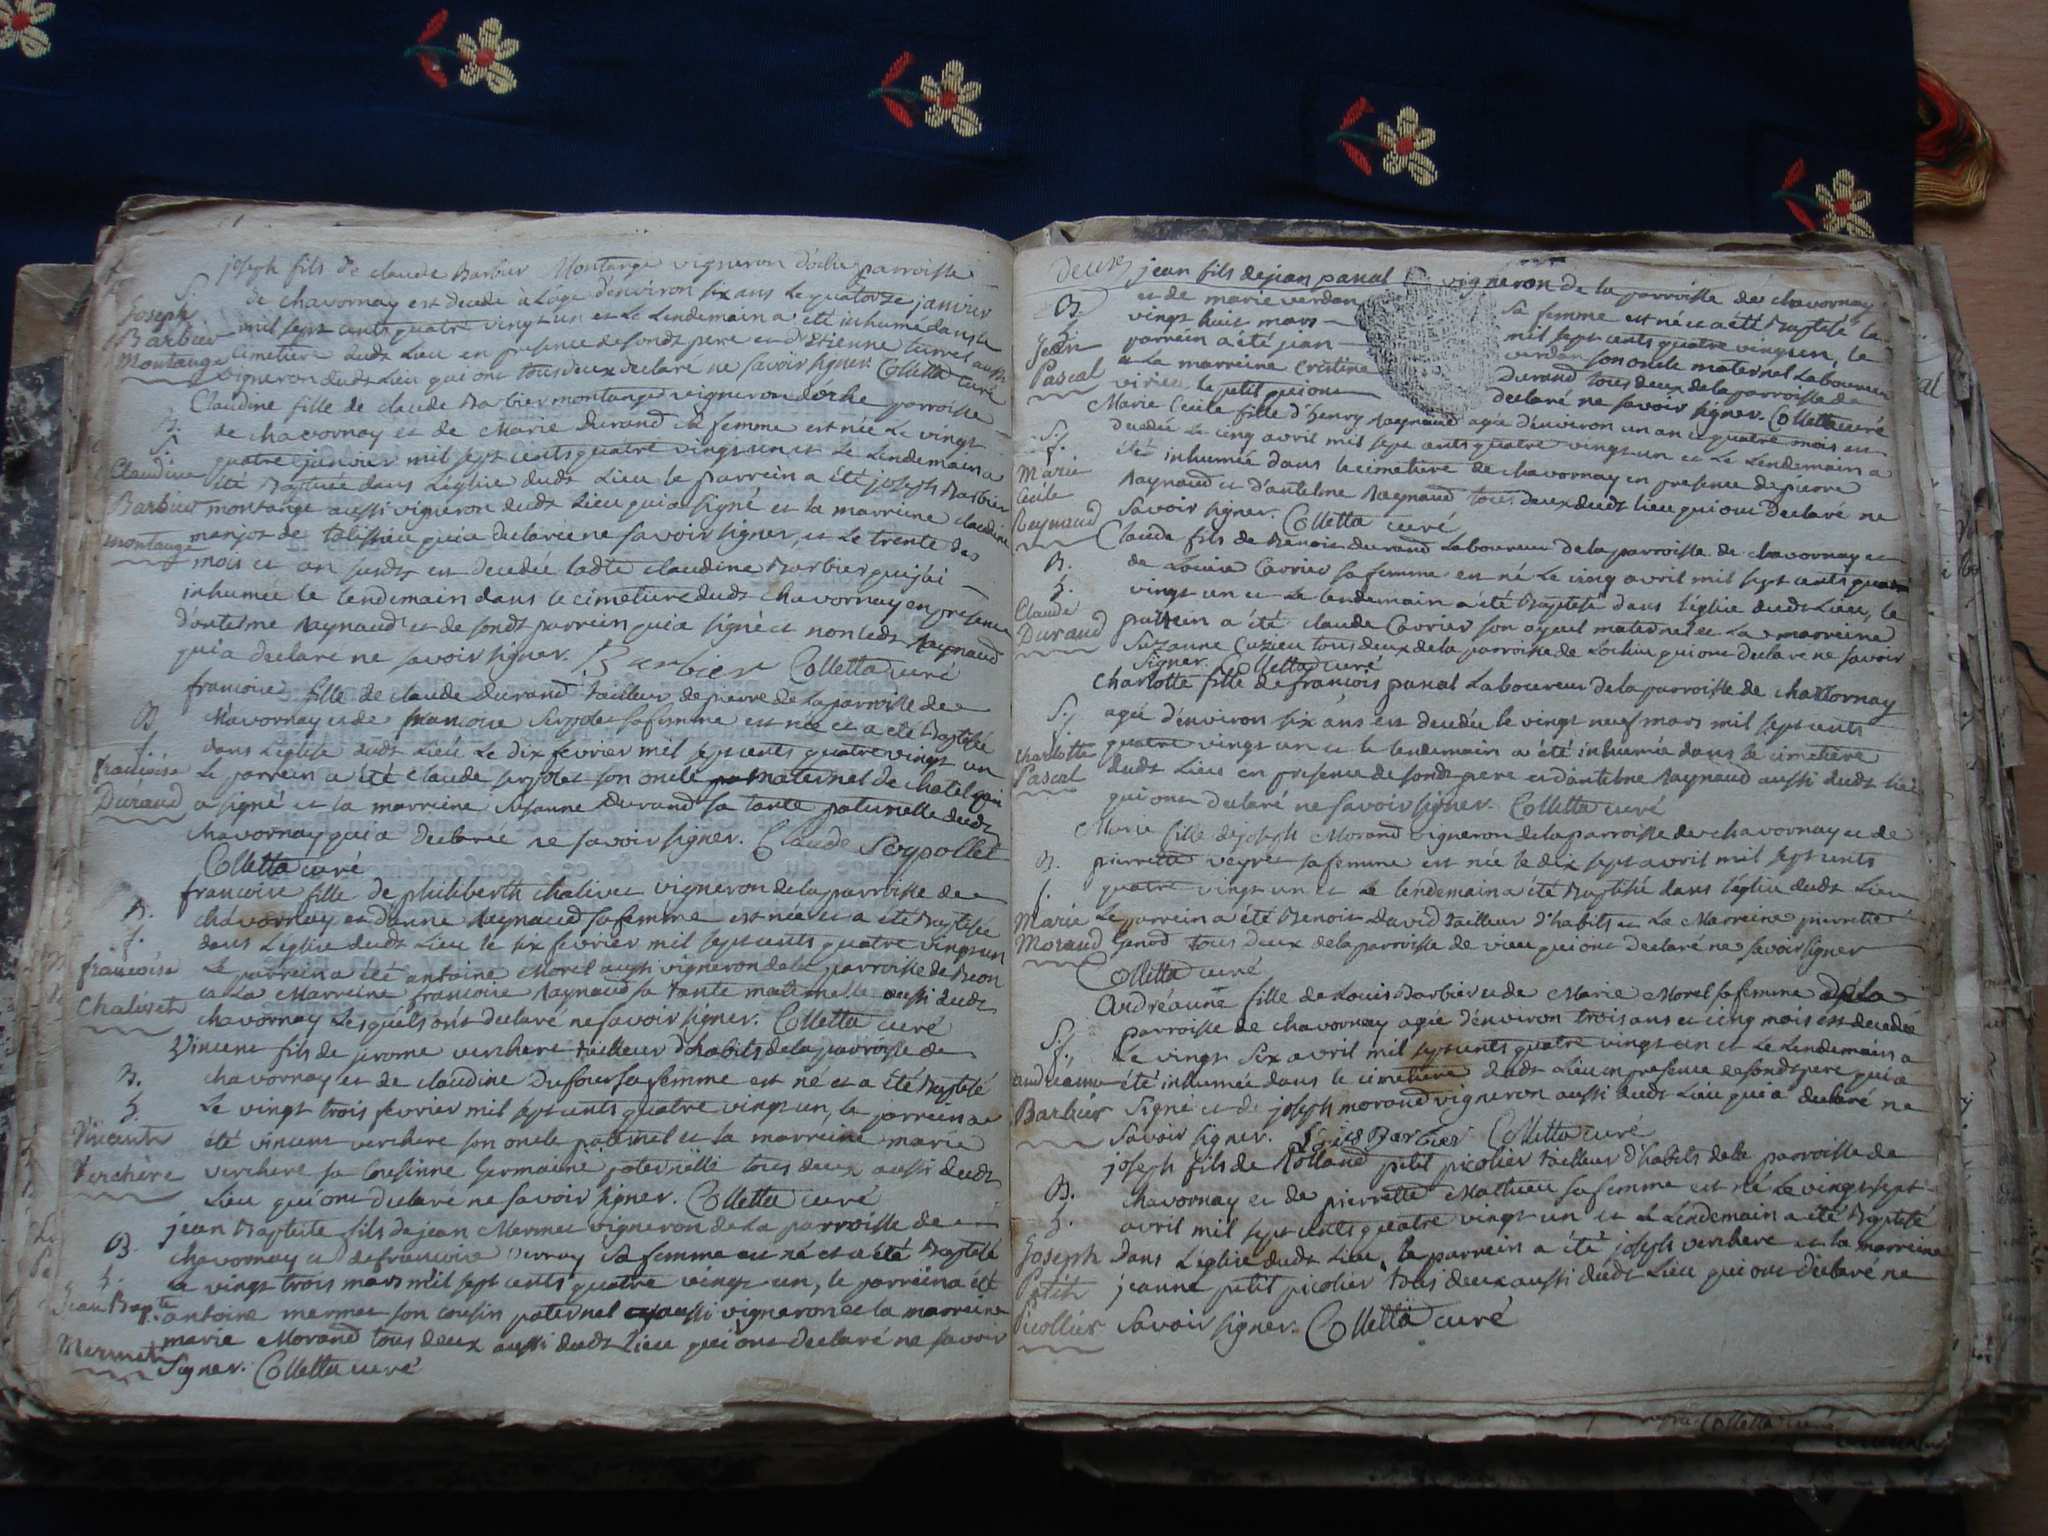 joseph fils de claude Barbier Montange vigneron d'oche parroisse
de chavornay est decede à L'age d'environ six ans Le quatorze janvier
mil sept cents quatre vingt un et Le Lendemain a été inhumé dans le
cimetiere dudt Lieu en presence de sondt pere et d'Etienne turrel aussi
vigneron dudt Lieu qui ont tous deux declaré ne savoir signer. Colletta curé
S.
Joseph
Barbier
Montange
Claudine fille de claude Barbier montange vigneron d'oche parroisse
de chavornay et de Marie Durand sa femme est née Le vingt
quatre janvier mil sept cents quatre vingt un et Le Lendemain a
été Baptisée dans L'église dudt Lieu le parrein a été joseph Barbier
montange aussi vigneron dudt Lieu qui a signé et la marreine claudine
manjot de talissieu qui a declaré ne savoir signer, et Le trente des
mois et an susdt est decedée ladte claudine Barbier qui j'ai
inhumée le lendemain dans le cimetiere dudt chavornay en presence
d'antelme Raynaud et de sondt parrein qui a signé et non ledt Raynaud
qui a declaré ne savoir signer. Barbier Colletta curé
B.
S.
Claudine
Barbier
montange
francoise fille de claude durand tailleur de pierre de La parroisse de
chavornay et de francoise Serpolet sa femme est née et a été Baptisée
dans L'église dudt Lieu Le dix fevrier mil sept cents quatre vingt un
Le parrein a été claude serpolet son oncle maternel de chatel
a signé et La marreine Susanne Durand sa tante paternelle dudt
chavornay qui a declarée ne savoir signer. Claude Serpollet
Colletta curé
B.
f.
francoise
Durand
francoise fille de philiberth chalivet vigneron de la parroisse de
chavornay et d'anne Raynaud sa femme est née et a été Baptisée
dans L'église dudt Lieu le six fevrier mil sept cents quatre vingt un
Le parrein a été antoine Morel aussi vigneron de la parroisse de Beon
et La Marreine francoise Raynaud sa tante maternelle aussi dudt
chavornay Lesquels ont declaré ne savoir signer. Colletta curé
B.
f.
francoise
Chalivet
Vincent fils de jerome verchere tailleur d'habits de la parroisse de
chavornay et de claudine Dufour sa femme est né et a été Baptisé
Le vingt trois fevrier mil sept cents quatre vingt un, le parrein a
été vincent verchere son oncle paternel et la marreine marie
verchere sa Cousinne Germaine paternelle tous deux aussi dudt
Lieu qui ont declaré ne savoir signer. Colletta curé
B.
h.
Vincent
Verchère
jean Baptiste fils de jean Mermet vigneron de La parroisse de
chavornay et de francoise sa femme est né et a été Baptisé
Le vingt trois mars mil sept cents quatre vingt un, le parrein a été
antoine mermet son cousin paternel aussi vigneron et la marreine
marie Morand tous deux aussi dudt Lieu qui ont declaré ne savoir
signer. Colletta curé
B.
h.
Jean Bapte
Mermet
deux
jean fils de jean pascal vigneron de la parroisse de chavornay
et de marie verdan sa femme est né et a été Baptisé le
vingt huit mars mil sept cents quatre vingt un, le
parrein a été jean verdan son oncle maternel Laboureur
et La marreine Cristine Durand tous deux de la parroisse de
virieu le petit qui ont declaré ne savoir signer. Colletta curé
B.
h.
Jean
Pascal
Marie Cecile fille d'henry Raynaud agée d'environ un an et quatre mois est
decedée Le cinq avril mil sept cents quatre vingt un et Le Lendemain a
été inhumée dans le cimetiere de chavornay en presence de pierre
Raynaud et d'antelme Raynaud tous deux dudt lieu qui ont declaré ne
savoir signer. Colletta curé
S.
f.
Marie
Cecile
Reynaud
Claude fils de Benoit durand Laboureur de la parroisse de chavornay et
de Louise Carrier sa femme est né Le cinq avril mil sept cents quatre
vingt un et Le lendemain a été Baptisé dans L'église dudt Lieu, le
parrein a été claude Carrier son ayeul maternel et La marreine
Suzanne Cuzieu tous deux de la parroisse de Lochieu qui ont declaré ne savoir
signer. Colletta curé
B.
h.
Claude
Durand
Charlotte fille de françois pascal Laboureur de la parroisse de chavornay
agée d'environ six ans est decedée le vingt neuf mars mil sept cents
quatre vingt un et le lendemain a été inhumée dans le cimetière
dudt Lieu en presence de sondt pere et d'antelme Raynaud aussi dudt lieu
qui ont declaré ne savoir signer. Colletta curé
S.
f.
Charlotte
Pascal
Marie fille de joseph Morand vigneron de la parroisse de chavornay et de
pierrette veyret sa femme est née le dix sept avril mil sept cents
quatre vingt un et Le lendemain a été Baptisée dans l'église dudt Lieu
Le parrein a été Benoit david tailleur d'habits et La Marreine pierrette
Genod tous deux de la parroisse de vieu qui ont declaré ne savoir signer
Colletta curé
B.
f.
Marie
Morand
Andréanne fille de Louis Barbier et de Marie Morel sa femme de la
parroisse de chavornay agée d'environ trois ans et cinq mois est decedée
Le vingt six avril mil sept cents quatre vingt un et Le Lendemain a
été inhumée dans le cimetiere dudt Lieu en presence de sondt pere qui a
signé et de joseph morand vigneron aussi dudt Lieu qui a declaré ne
savoir signer. Louis Barbier Colletta curé
S.
f.
andréanne
Barbier
joseph fils de Rolland petit picolier tailleur d'habits de la parroisse de
chavornay et de pierrette Mathieu sa femme est né Le vingt sept
avril mil sept cents quatre vingt un et Le Lendemain a été Baptisé
dans L'église dudt Lieu, le parrein a été joseph verchere et la marreine
jeanne petit picolier tous deux aussi dudt Lieu qui ont declaré ne
savoir signer. Colletta curé
B.
h.
Joseph
Petit
Picollier
Colletta curé